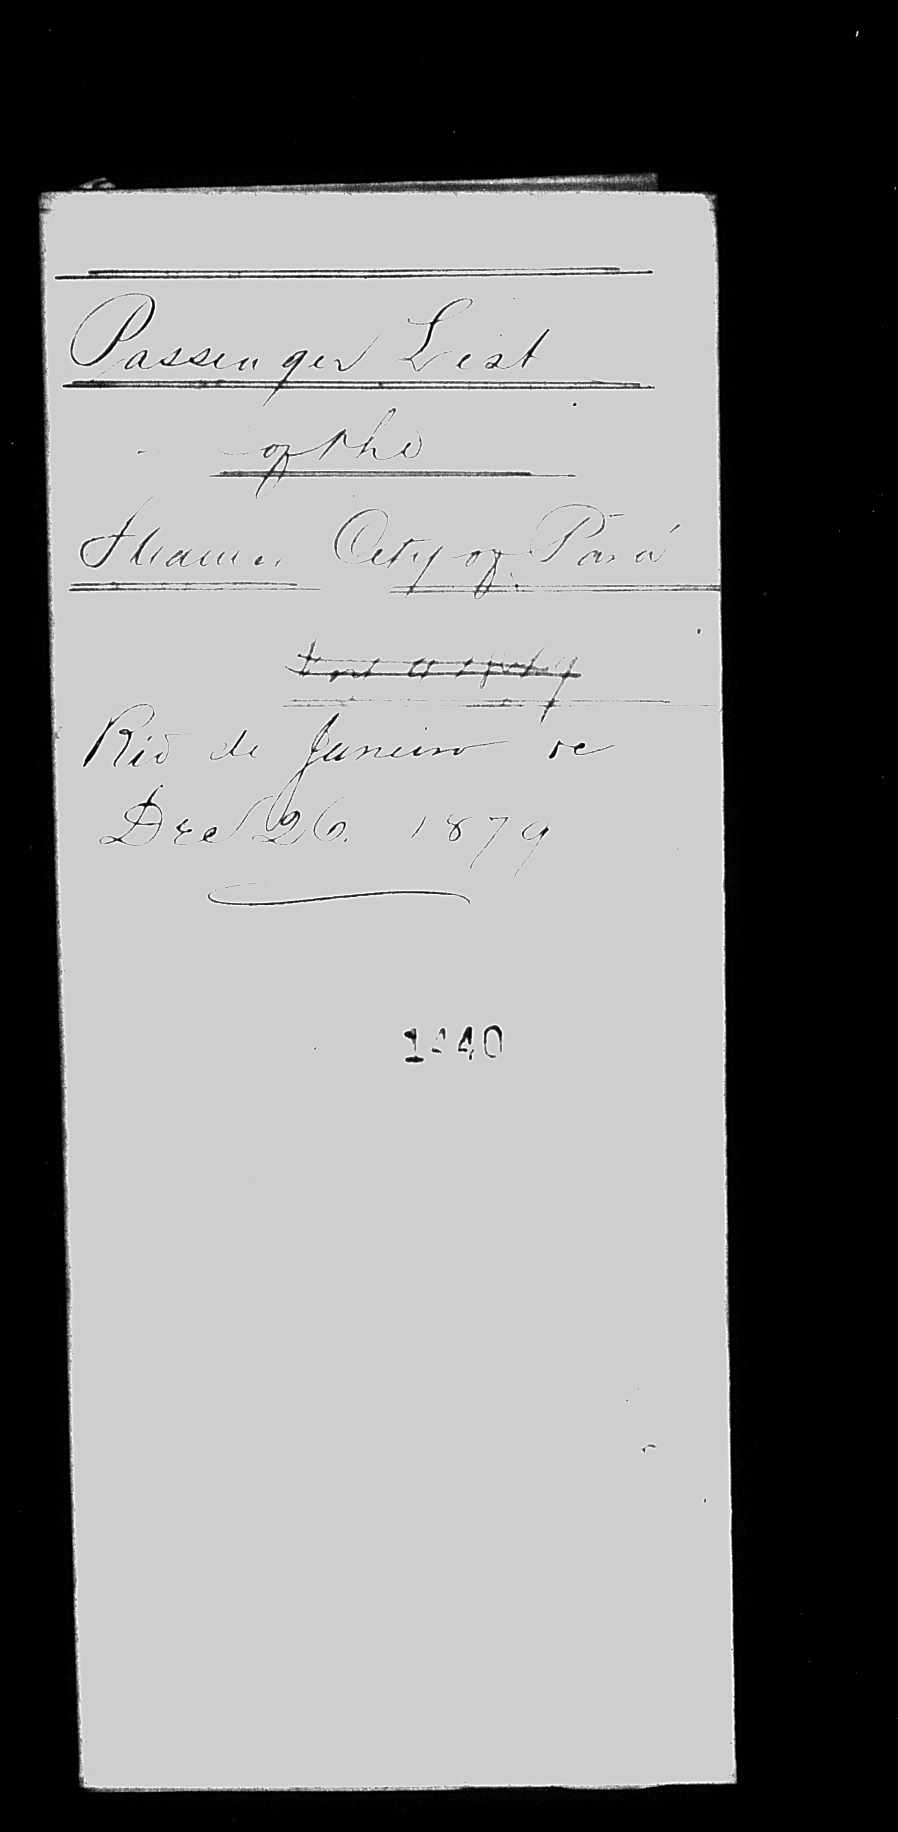 Passenger List
of the
Steamer City of Pará
Rio de Janeiro &c
Dec 26. 1879